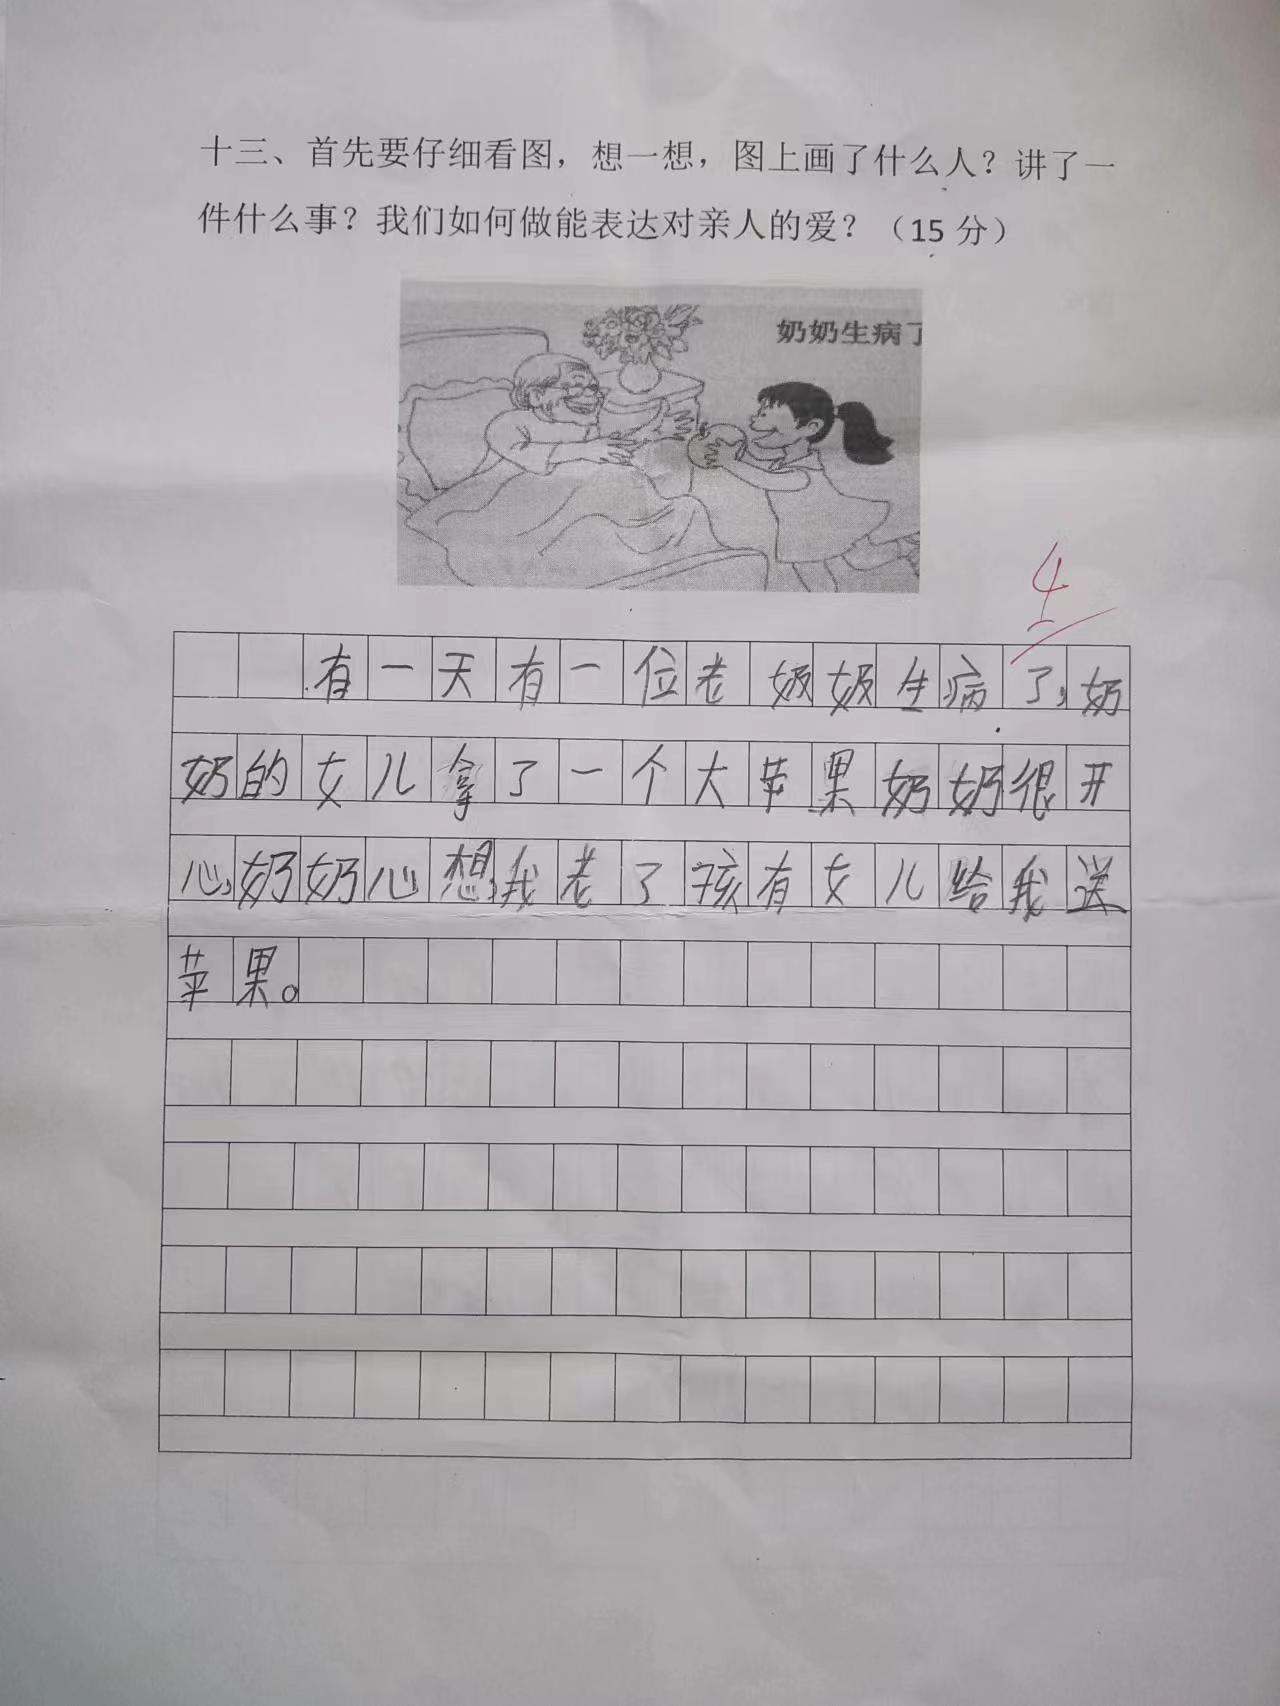 十三、首先要仔细看图，想一想，图上画了什么人？讲了一
件什么事？我们如何做能表达对亲人的爱？（15 分）
奶奶生病了
4
有一天有一位老奶奶生病了，奶
奶的女儿拿了一个大苹果奶奶很开
心，奶奶心想，我老了孩有女儿给我送
苹果。